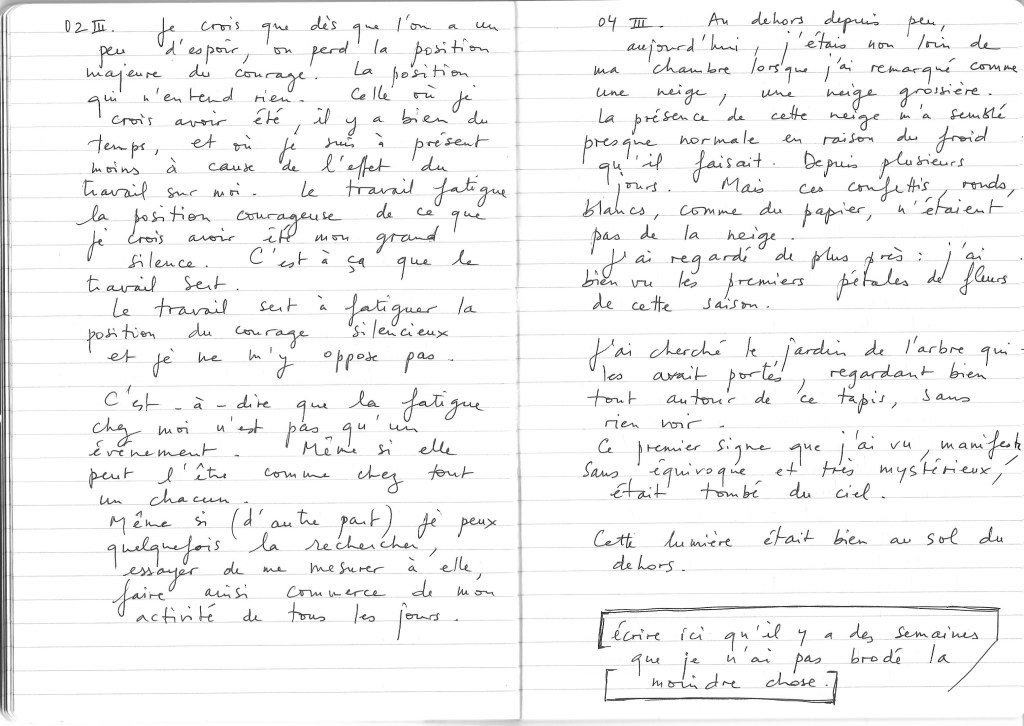 02 III. Je crois que dès que l'on a un
peu d'espoir, on perd la position
majeure du courage. La position
qui n'entend rien. Celle où je
crois avoir été, il y a bien du
temps, et où je suis à présent
moins à cause de l'effet du
travail sur moi. Le travail fatigue
la position courageuse de ce que
je crois avoir été mon grand
silence. C'est à ça que le
travail sert.
Le travail sert à fatiguer la
position du courage silencieux
et je ne m'y oppose pas.
C'est-à-dire que la fatigue
chez moi n'est pas qu'un
événement. Même si elle
peut l'être comme chez tout
un chacun.
Même si (d'autre part) je peux
quelquefois la rechercher,
essayer de me mesurer à elle,
faire ainsi commerce de mon
activité de tous les jours.
04 III. Au dehors depuis peu,
aujourd'hui, j'étais non loin de
ma chambre lorsque j'ai remarqué comme
une neige, une neige grossière.
La présence de cette neige m'a semblé
presque normale en raison du froid
qu'il faisait. Depuis plusieurs
jours. Mais ces confettis, ronds,
blancs, comme du papier, n'étaient
pas de la neige.
J'ai regardé de plus près : j'ai
bien vu les premiers pétales de fleurs
de cette saison.
J'ai cherché le jardin de l'arbre qui
les avait portés, regardant bien
tout autour de ce tapis, sans
rien voir.
Ce premier signe que j'ai vu, manifeste
sans équivoque et très mystérieux,
était tombé du ciel.
Cette lumière était bien au sol du
dehors.
écrire ici qu'il y a des semaines
que je n'ai pas brodé la
moindre chose.